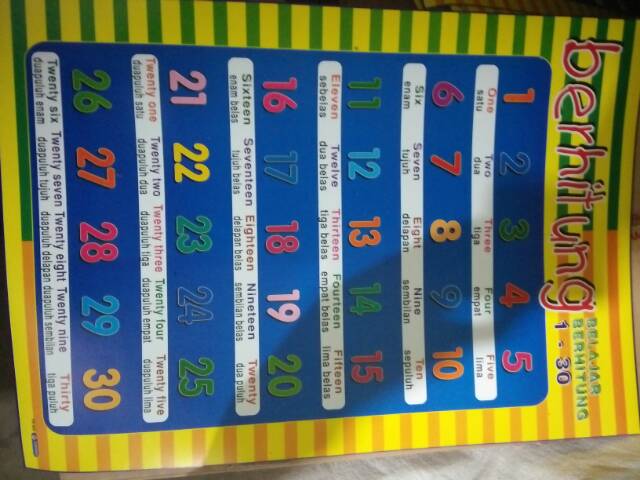 berhitung
BELAJAR
BERHITUNG
1 - 30
1 2 3 4 5
One Two Three Four Five
satu dua tiga empat lima
6 7 8 9 10
Six Seven Eight Nine Ten
enam tujuh delapan sembilan sepuluh
11 12 13 14 15
Eleven Twelve Thirteen Fourteen Fifteen
sebelas dua belas tiga belas empat belas lima belas
16 17 18 19 20
Sixteen Seventeen Eighteen Nineteen Twenty
enam belas tujuh belas delapan belas sembilan belas dua puluh
21 22 23 24 25
Twenty one Twenty two Twenty three Twenty four Twenty five
duapuluh satu duapuluh dua duapuluh tiga duapuluh empat duapuluh lima
26 27 28 29 30
Twenty six Twenty seven Twenty eight Twenty nine Thirty
duapuluh enam duapuluh tujuh duapuluh delapan duapuluh sembilan tiga puluh